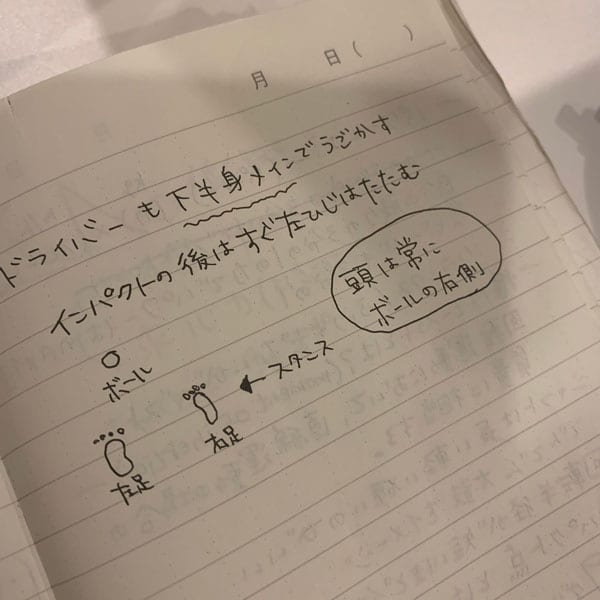 月 日( )
ドライバーも下半身メインでうごかす
インパクトの後はすぐ左ひじはたたむ
頭は常に
ボールの右側
ボール
スタンス
右足
左足